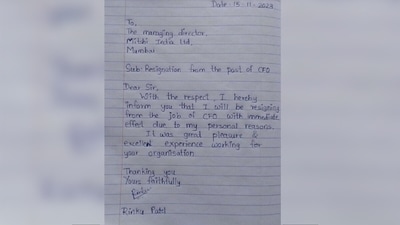 Date - 15-11-2023
To,
The managing director,
Mitshi India Ltd,
Mumbai
Sub: Resignation from the post of CFO
Dear Sir,
With the respect, I hereby
inform you that I will be resigning
from the Job of CFO with immediate
effect due to my personal reasons.
It was good pleasure &
excellent experience working for
your organisation
Thanking you
Yours faithfully
Rinku Patil